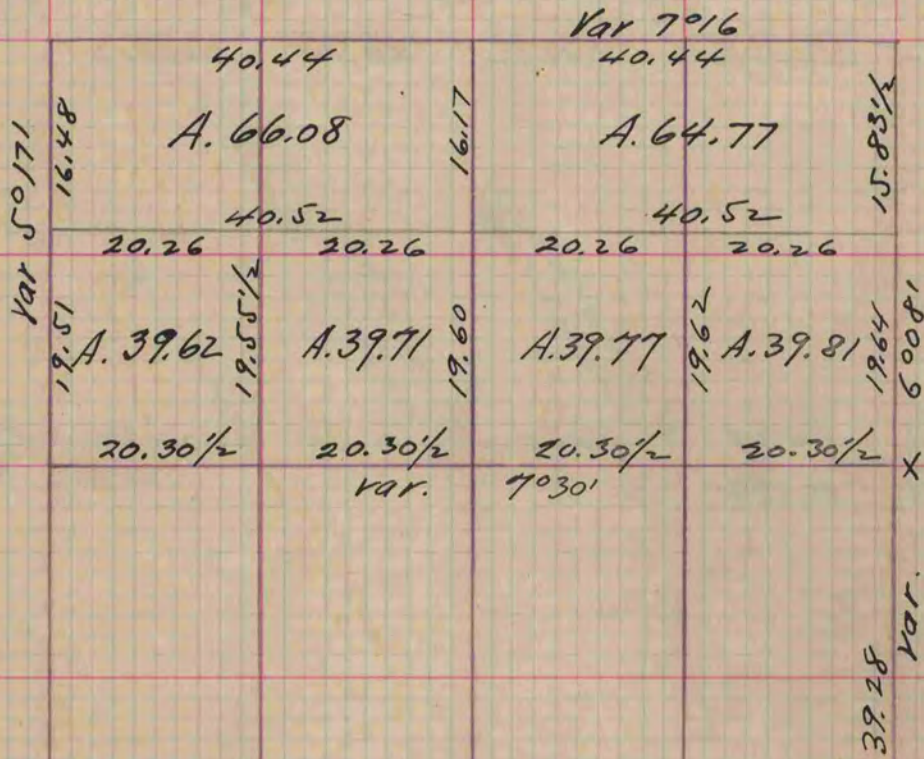 Var 7°16
40.44 40.44
Var 5°17'
16.48
A. 66.08
16.17
A. 64.77
15.83½
40.52 40.52
20.26 20.26 20.26 20.26
19.51
A. 39.62
19.55½
A. 39.71
19.60
A. 39.77
19.62
A. 39.81
19.64
20.30½ 20.30½ 20.30½ 20.30½
var. 7°30'
Var. x 6°008'
39.28